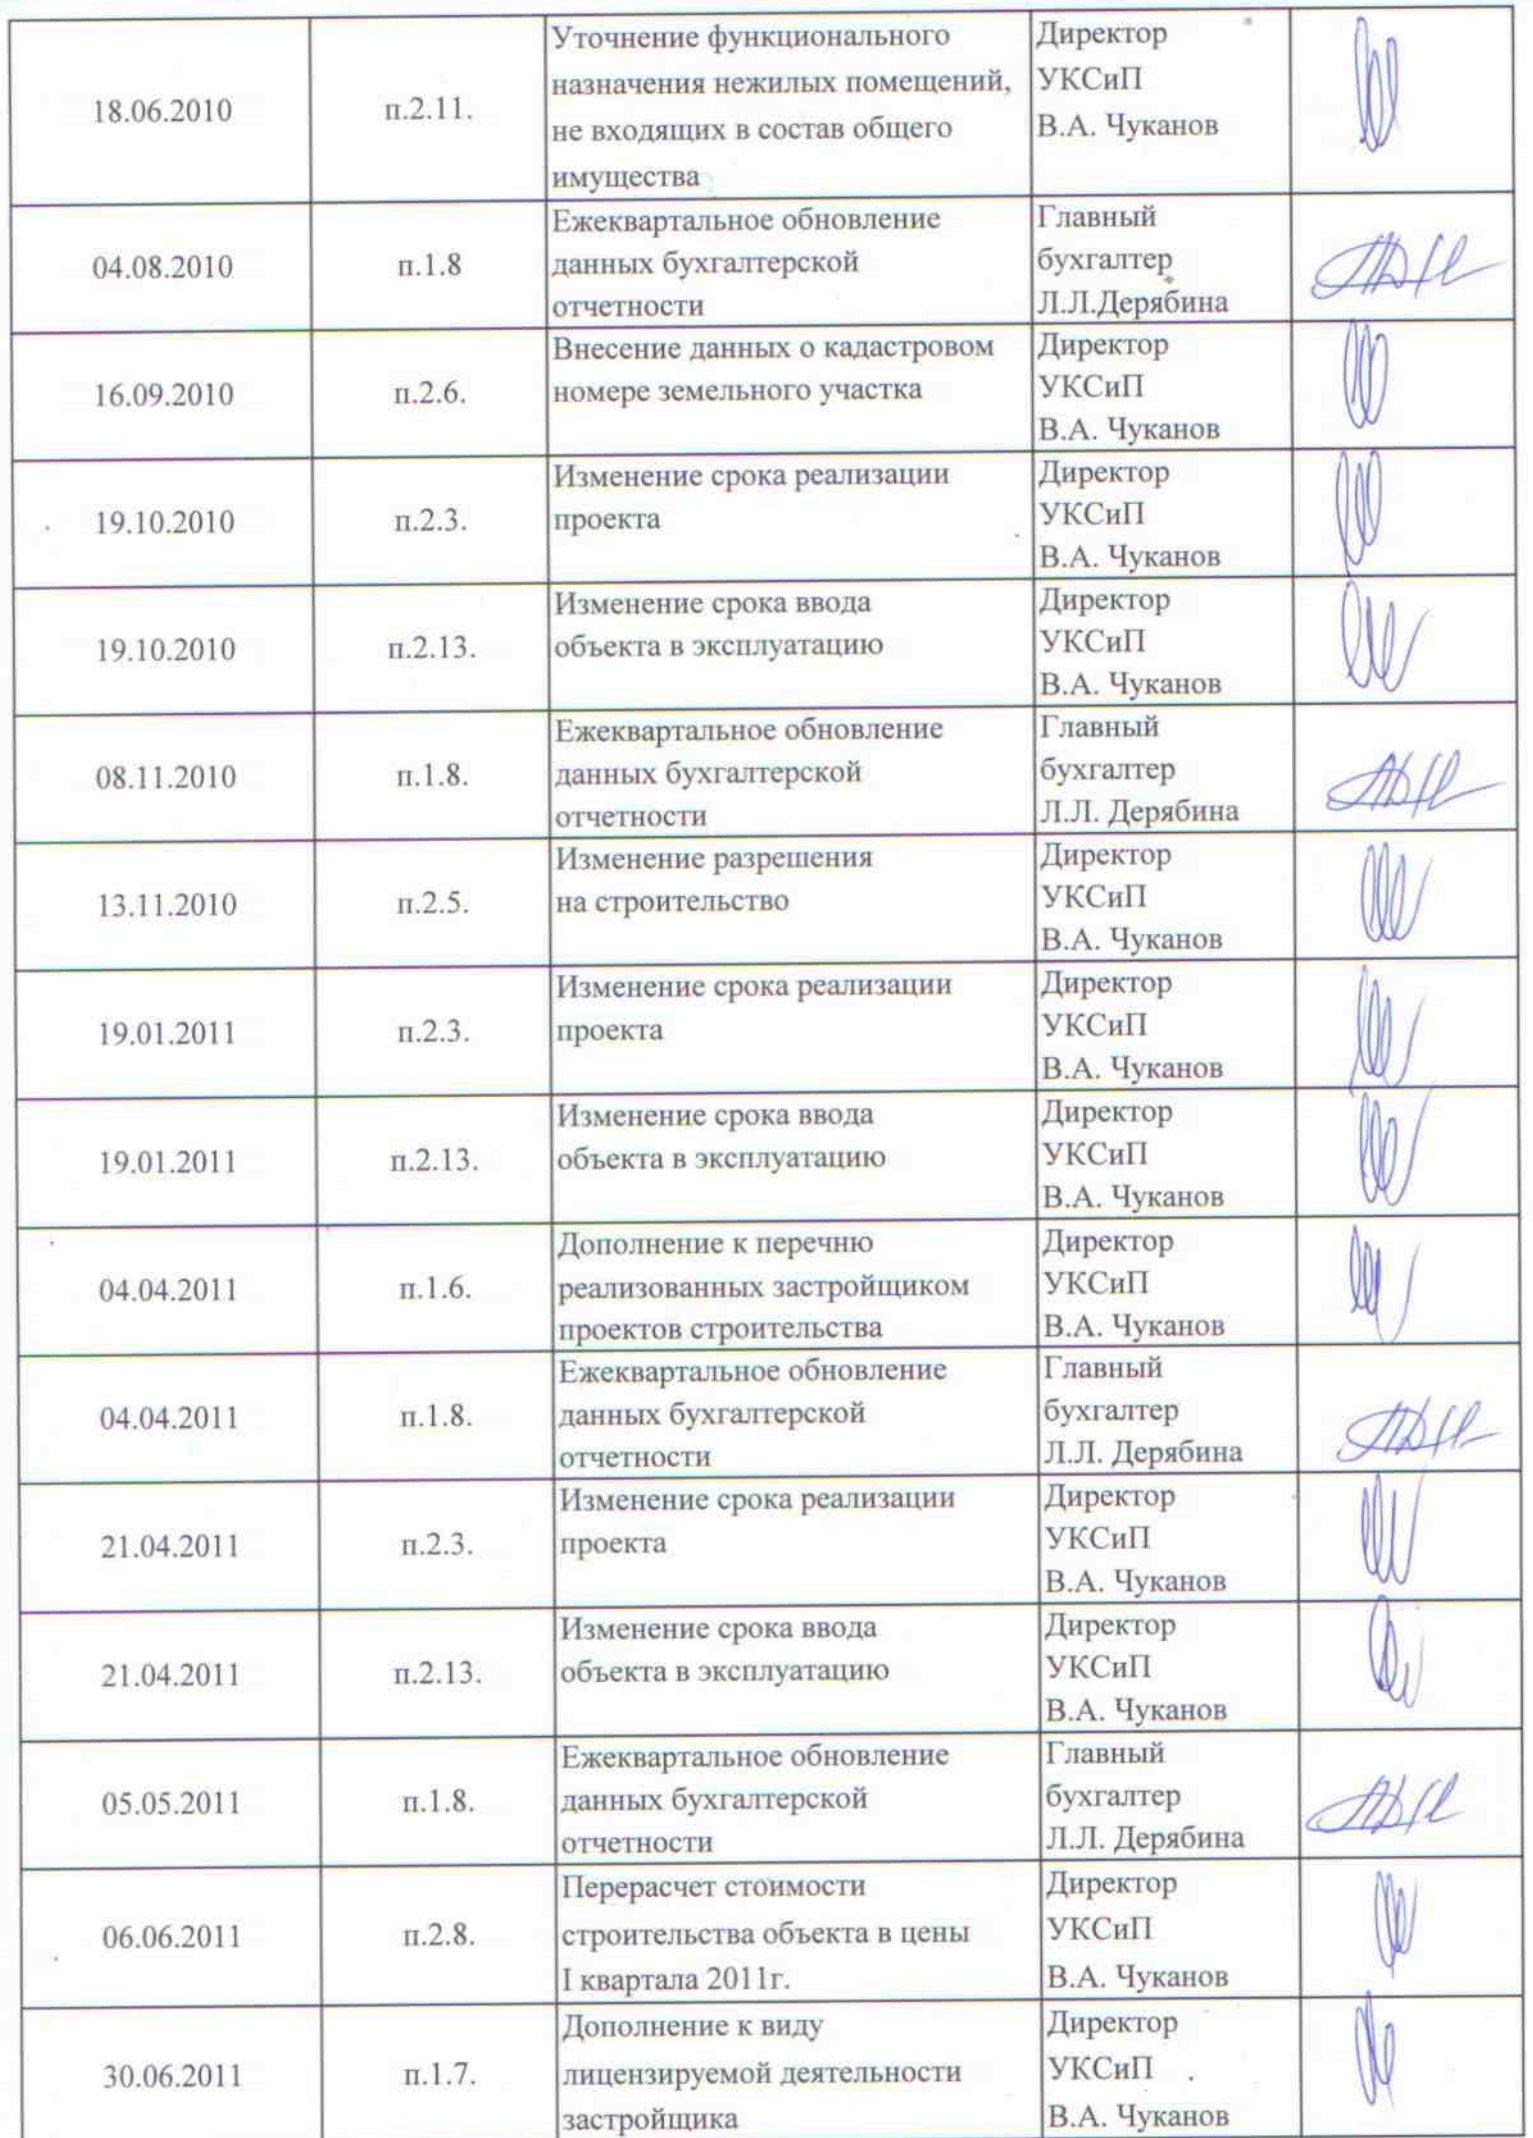 18.06.2010
п.2.11.
Уточнение функционального
назначения нежилых помещений,
не входящих в состав общего
имущества
Директор
УКСиП
В.А. Чуканов
04.08.2010
п.1.8
Ежеквартальное обновление
данных бухгалтерской
отчетности
Главный
бухгалтер
Л.Л.Дерябина
16.09.2010
п.2.6.
Внесение данных о кадастровом
номере земельного участка
Директор
УКСиП
В.А. Чуканов
19.10.2010
п.2.3.
Изменение срока реализации
проекта
Директор
УКСиП
В.А. Чуканов
19.10.2010
п.2.13.
Изменение срока ввода
объекта в эксплуатацию
Директор
УКСиП
В.А. Чуканов
08.11.2010
п.1.8.
Ежеквартальное обновление
данных бухгалтерской
отчетности
Главный
бухгалтер
Л.Л. Дерябина
13.11.2010
п.2.5.
Изменение разрешения
на строительство
Директор
УКСиП
В.А. Чуканов
19.01.2011
п.2.3.
Изменение срока реализации
проекта
Директор
УКСиП
В.А. Чуканов
19.01.2011
п.2.13.
Изменение срока ввода
объекта в эксплуатацию
Директор
УКСиП
В.А. Чуканов
04.04.2011
п.1.6.
Дополнение к перечню
реализованных застройщиком
проектов строительства
Директор
УКСиП
В.А. Чуканов
04.04.2011
п.1.8.
Ежеквартальное обновление
данных бухгалтерской
отчетности
Главный
бухгалтер
Л.Л. Дерябина
21.04.2011
п.2.3.
Изменение срока реализации
проекта
Директор
УКСиП
В.А. Чуканов
21.04.2011
п.2.13.
Изменение срока ввода
объекта в эксплуатацию
Директор
УКСиП
В.А. Чуканов
05.05.2011
п.1.8.
Ежеквартальное обновление
данных бухгалтерской
отчетности
Главный
бухгалтер
Л.Л. Дерябина
06.06.2011
п.2.8.
Перерасчет стоимости
строительства объекта в цены
I квартала 2011г.
Директор
УКСиП
В.А. Чуканов
30.06.2011
п.1.7.
Дополнение к виду
лицензируемой деятельности
застройщика
Директор
УКСиП
В.А. Чуканов